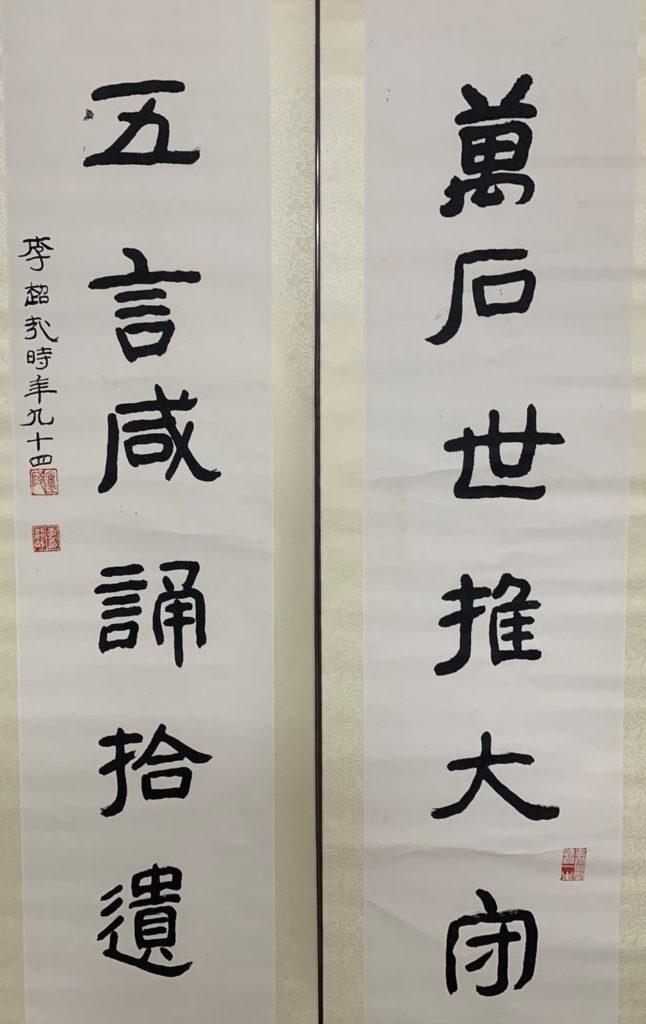 萬石世推大守
五言咸誦拾遺
李超哉時年九十四